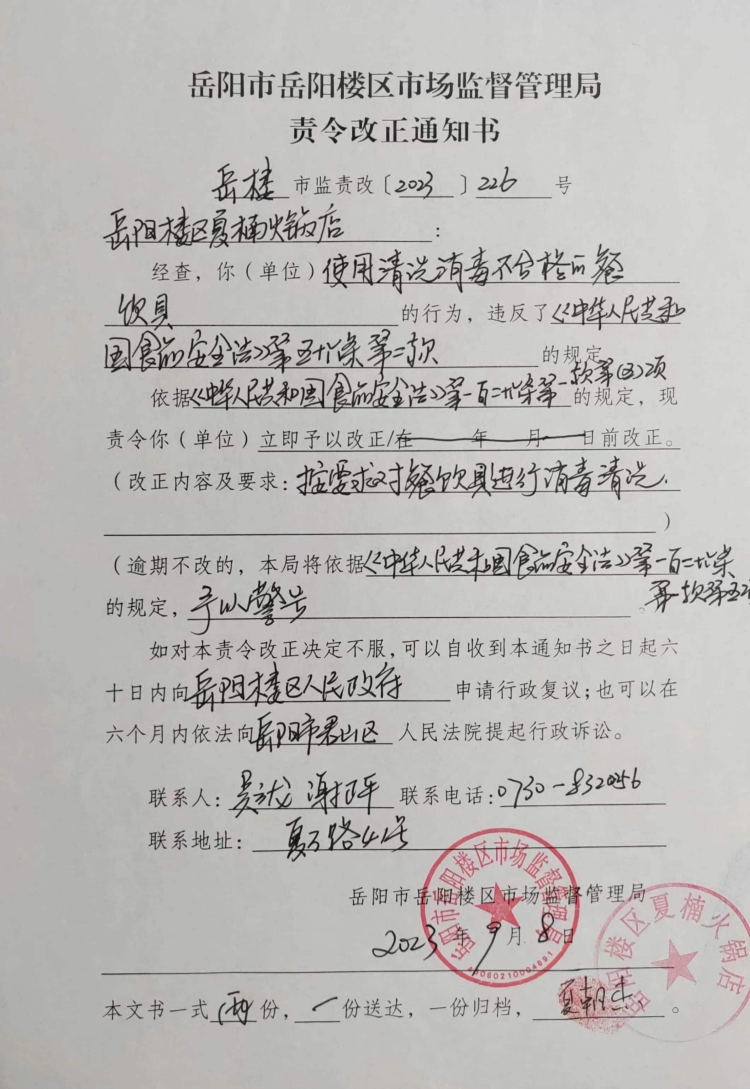 岳阳市岳阳楼区市场监督管理局
责令改正通知书
岳楼 市监责改〔2023〕226 号
岳阳楼区夏楠火锅店：
经查，你（单位）使用清洗消毒不合格的餐
饮具 的行为，违反了《中华人民共和
国食品安全法》第五十六条第二款 的规定
依据《中华人民共和国食品安全法》第一百二十六条第一款第(五)项 的规定，现
责令你（单位）立即予以改正/在 年 月 日前改正。
（改正内容及要求：按要求对餐饮具进行消毒清洗.
）
（逾期不改的，本局将依据《中华人民共和国食品安全法》第一百二十六条
第一款第五项
的规定，予以警告 。
如对本责令改正决定不服，可以自收到本通知书之日起六
十日内向岳阳楼区人民政府 申请行政复议；也可以在
六个月内依法向岳阳市君山区 人民法院提起行政诉讼。
联系人： 龙 联系电话：0730-832056
联系地址： 路41号
岳阳市岳阳楼区市场监督管理局
2023 年 9 月 8 日
岳阳市岳阳楼区市场监督管理局
岳阳楼区夏楠火锅店
本文书一式 两 份， 一 份送达，一份归档， 夏朝杰 。